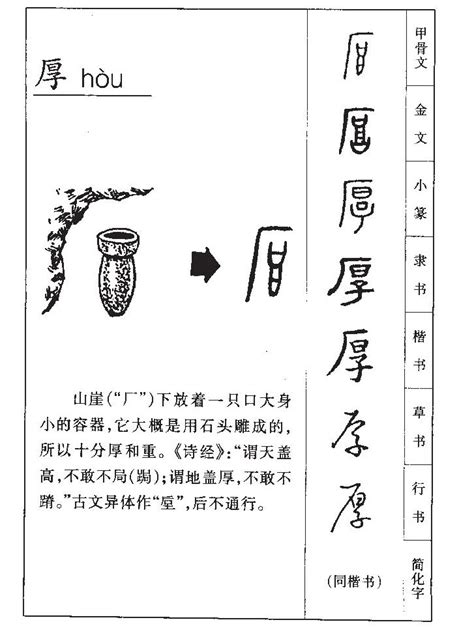 厚 hòu
山崖(“厂”)下放着一只口大身
小的容器,它大概是用石头雕成的,
所以十分厚和重。《诗经》:“谓天盖
高,不敢不局(跼);谓地盖厚,不敢不
蹐。”古文异体作“垕”,后不通行。
厚
厚
厚
厚
厚
厚
厚
(同楷书)
甲骨文
金文
小篆
隶书
楷书
草书
行书
简化字